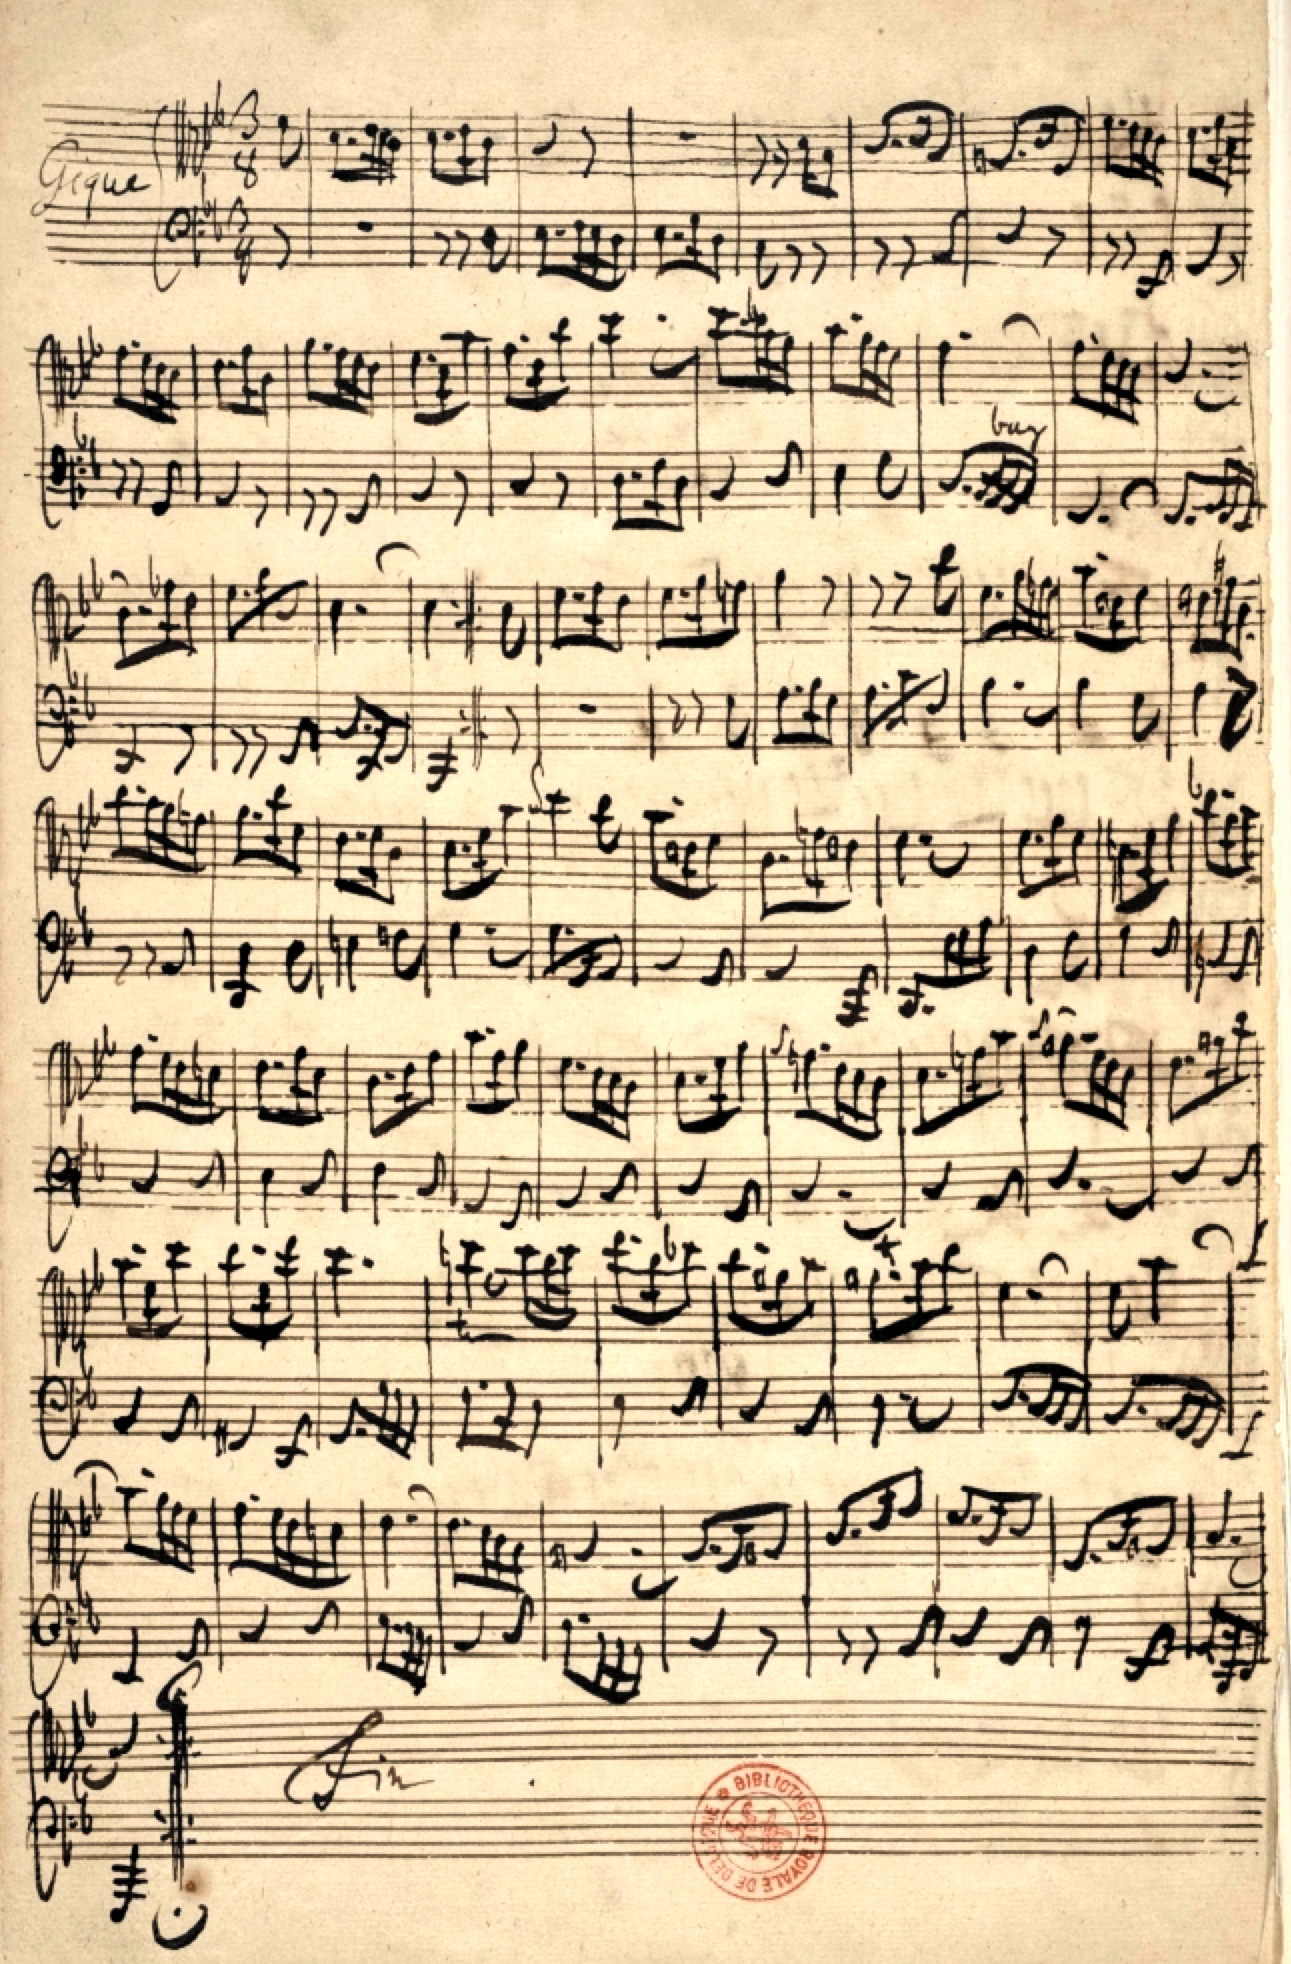 Gique
3
8
3
8
Fin
BIBLIOTHEQUE ROYALE DE BELGIQUE